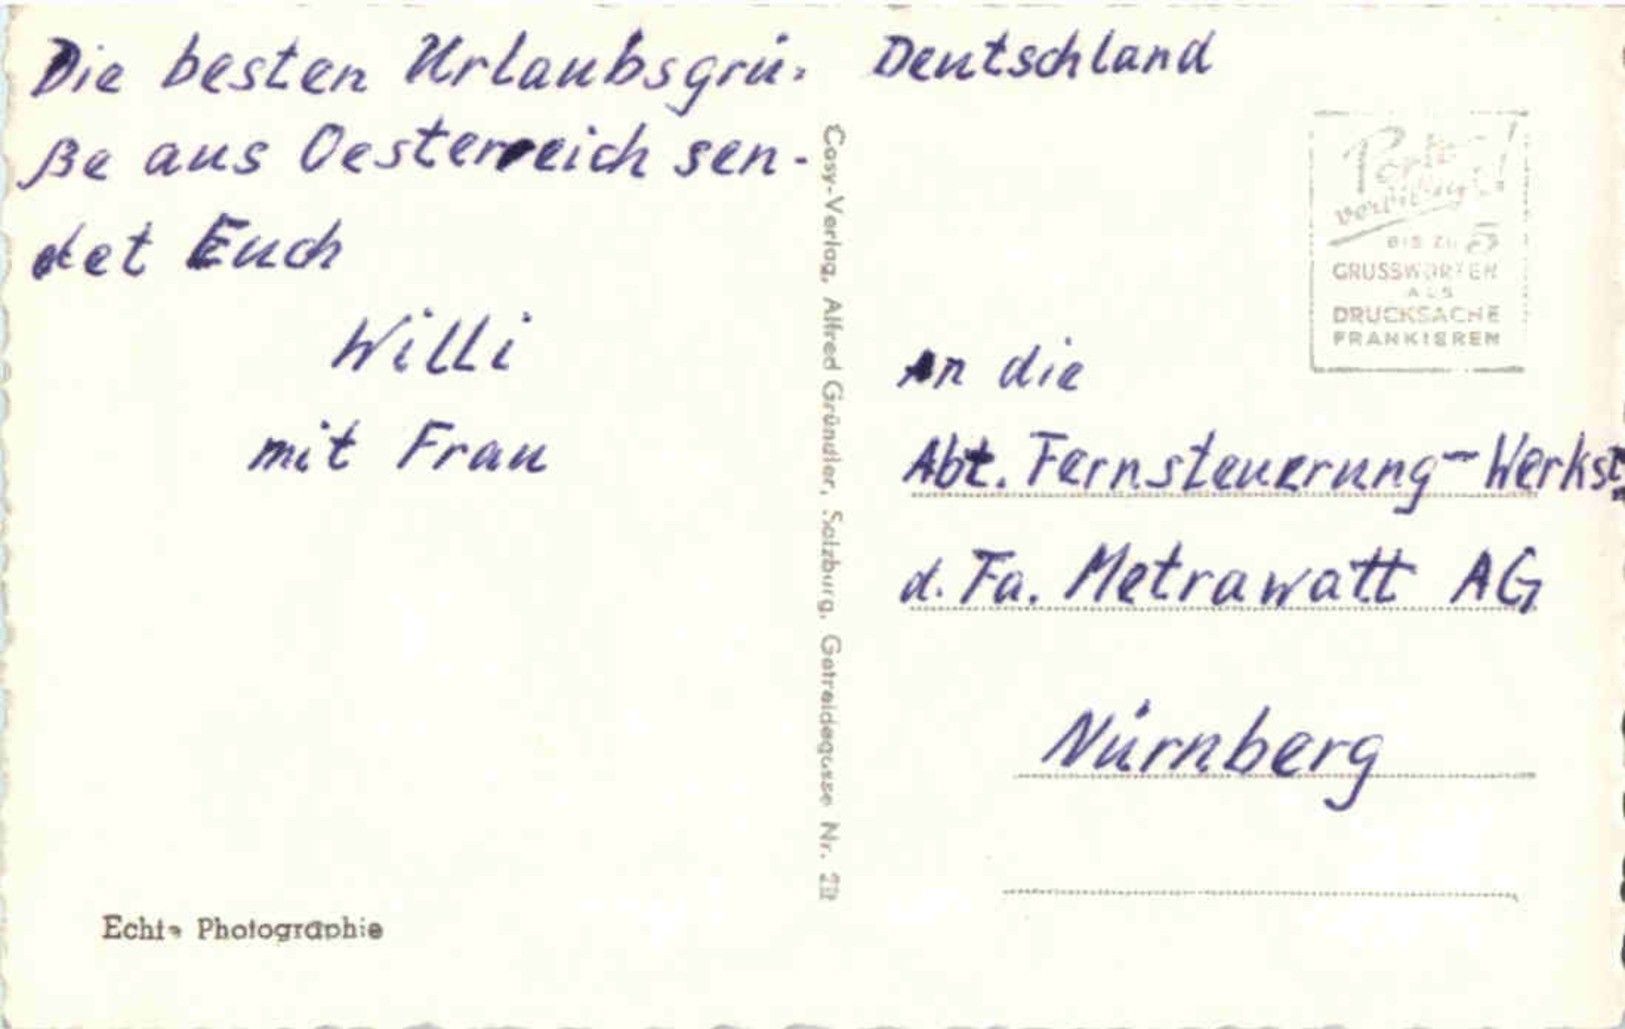 Die besten Urlaubsgrü-
ße aus Oesterreich sen-
det Euch
Willi
mit Frau
Echte Photographie
Cosy-Verlag, Alfred Gründler, Salzburg, Getreidegasse Nr.
Deutschland
Porto
verbilligt!
BIS ZU 5
GRUSSWORTEN
ALS
DRUCKSACHE
FRANKIEREN
An die
Abt. Fernsteuerung-Werkst.
d. Fa. Metrawatt AG
Nürnberg